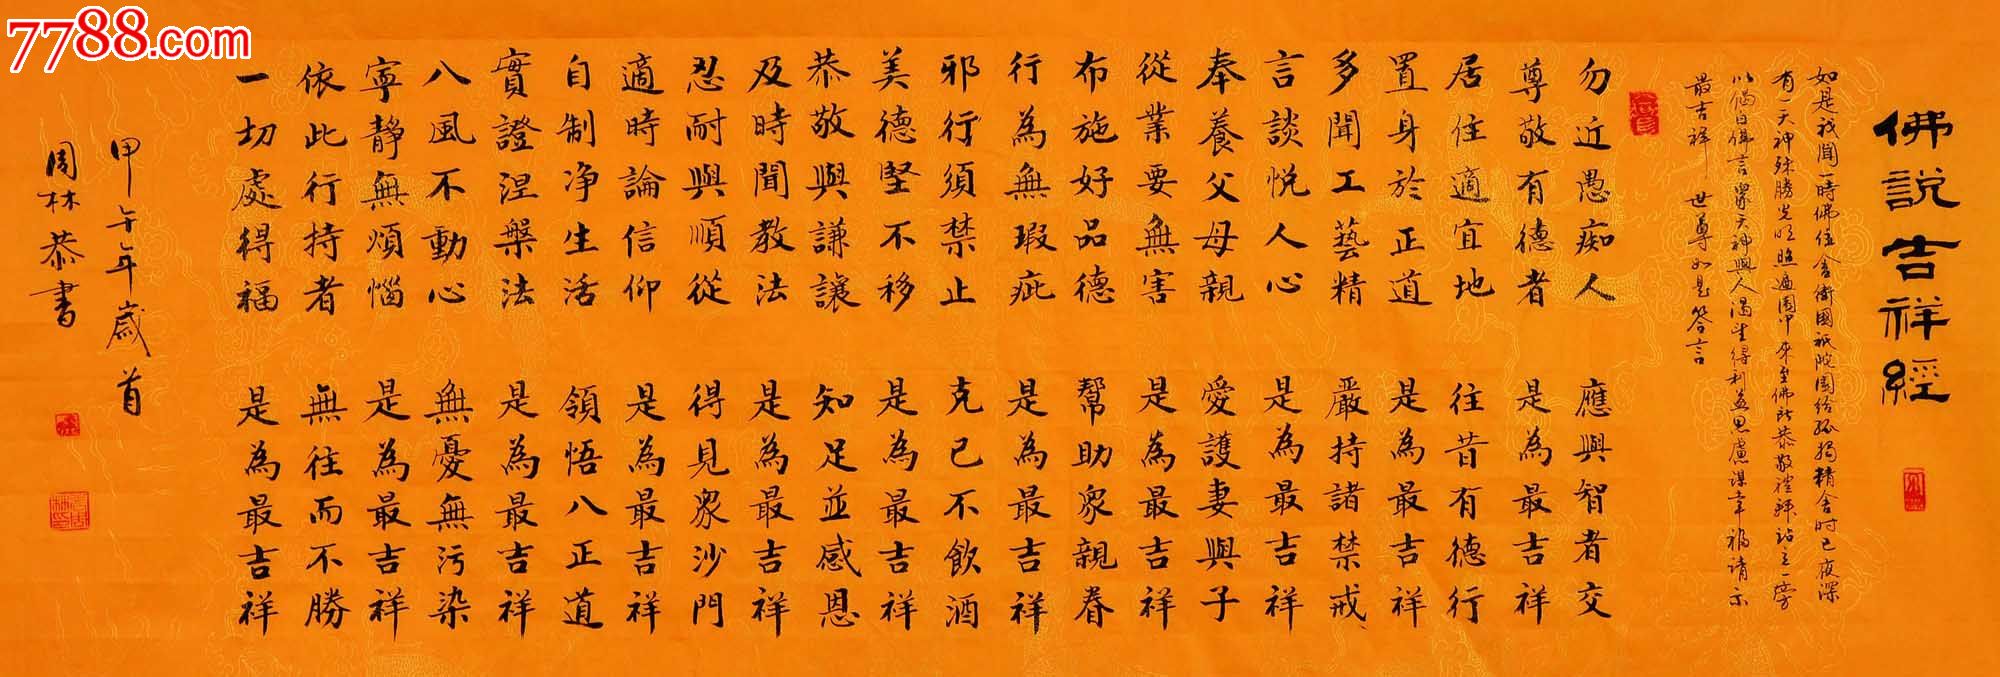 7788.com
佛說吉祥經
如是我聞一時佛住舍衛國祇陀園給孤獨精舍時已夜深
有一天神殊勝光明照遍園中來至佛所恭敬禮拜站立一旁
以偈白佛言眾天神與人渴望得利益思慮謀幸福請示
最吉祥 世尊如是答言
勿近愚痴人 應與智者交
尊敬有德者 是為最吉祥
居住適宜地 往昔有德行
置身於正道 是為最吉祥
多聞工藝精 嚴持諸禁戒
言談悅人心 是為最吉祥
奉養父母親 愛護妻與子
從業要無害 是為最吉祥
布施好品德 幫助眾親眷
行為無瑕疵 是為最吉祥
邪行須禁止 克已不飲酒
美德堅不移 是為最吉祥
恭敬與謙讓 知足並感恩
及時聞教法 是為最吉祥
忍耐與順從 得見眾沙門
適時論信仰 是為最吉祥
自制净生活 領悟八正道
實證涅槃法 是為最吉祥
八風不動心 無憂無污染
寧靜無煩惱 是為最吉祥
依此行持者 無往而不勝
一切處得福 是為最吉祥
甲午年歲首
周林恭書